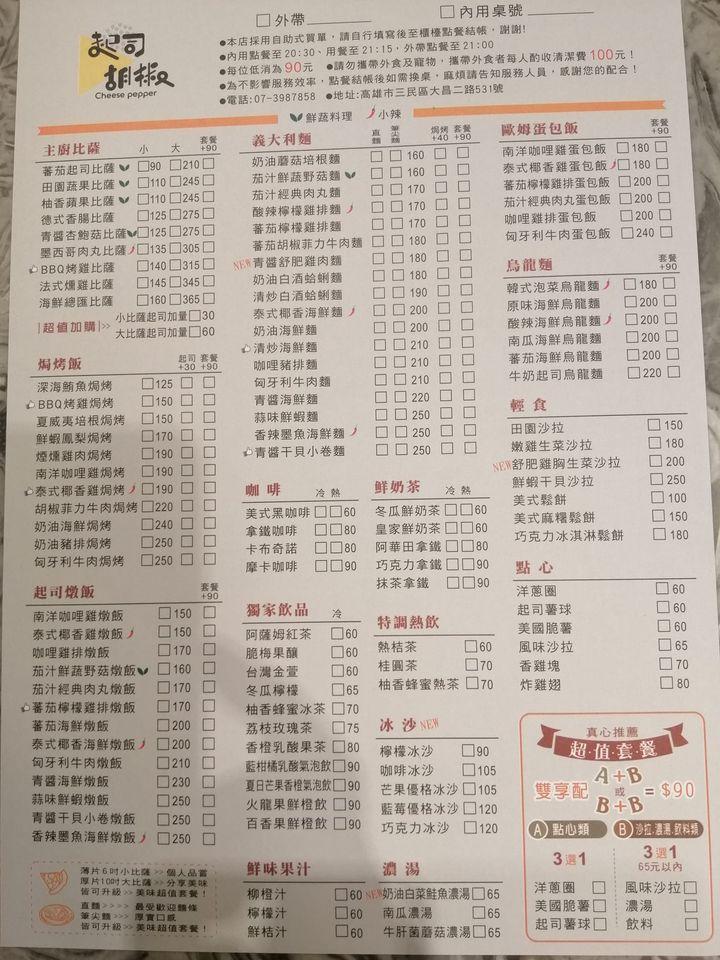 起司胡椒
Cheese pepper
□外帶
□內用桌號
●本店採用自助式買單，請自行填寫後至櫃檯點餐結帳，謝謝!
●內用點餐至20:30、用餐至21:15，外帶點餐至21:00
●每位低消為90元 ●請勿攜帶外食及寵物，攜帶外食者每人酌收清潔費100元！
●為不影響服務效率，點餐結帳後如需換桌，麻煩請告知服務人員，感謝您的配合！
●電話:07-3987858 ●地址:高雄市三民區大昌二路531號
鮮蔬料理 小辣
主廚比薩 小 大 套餐+90
蕃茄起司比薩 □90 □210 □
田園蔬果比薩 □110 □245 □
柚香蘋果比薩 □110 □245 □
德式香腸比薩 □125 □275 □
青醬杏鮑菇比薩 □125 □275 □
墨西哥肉丸比薩 □135 □305 □
BBQ烤雞比薩 □140 □315 □
法式燻雞比薩 □145 □345 □
海鮮總匯比薩 □160 □365 □
|超值加購|>> 小比薩起司加量□30
大比薩起司加量□60
焗烤飯 起司+30 套餐+90
深海鮪魚焗烤 □125 □ □
BBQ烤雞焗烤 □150 □ □
夏威夷培根焗烤 □150 □ □
鮮蝦鳳梨焗烤 □170 □ □
煙燻雞肉焗烤 □190 □ □
南洋咖哩焗烤 □190 □ □
泰式椰香雞焗烤 □190 □ □
胡椒菲力牛肉焗烤 □220 □ □
奶油海鮮焗烤 □240 □ □
奶油豬排焗烤 □250 □ □
匈牙利牛肉焗烤 □250 □ □
起司燉飯 套餐+90
南洋咖哩雞燉飯 □150 □
泰式椰香雞燉飯 □150 □
咖哩雞排燉飯 □170 □
茄汁鮮蔬野菇燉飯 □160 □
茄汁經典肉丸燉飯 □170 □
蕃茄檸檬雞排燉飯 □170 □
蕃茄海鮮燉飯 □200 □
泰式椰香海鮮燉飯 □200 □
匈牙利牛肉燉飯 □210 □
青醬海鮮燉飯 □230 □
蒜味鮮蝦燉飯 □250 □
青醬干貝小卷燉飯 □250 □
香辣墨魚海鮮燉飯 □250 □
薄片6吋小比薩 >> 個人品嘗
厚片10吋大比薩 >> 分享美味
皆可升級 >> 美味超值套餐！
直麵 >>>> 最受歡迎麵條
筆尖麵 >>> 厚實口感
皆可升級 >> 美味超值套餐！
義大利麵 直麵 筆尖麵 焗烤+40 套餐+90
奶油蘑菇培根麵 □ □ 160 □ □
茄汁鮮蔬野菇麵 □ □ 160 □ □
茄汁經典肉丸麵 □ □ 170 □ □
酸辣檸檬雞排麵 □ □ 170 □ □
蕃茄檸檬雞排麵 □ □ 170 □ □
蕃茄胡椒菲力牛肉麵 □ □ 180 □ □
NEW青醬舒肥雞肉麵 □ □ 180 □ □
奶油白酒蛤蜊麵 □ □ 180 □ □
清炒白酒蛤蜊麵 □ □ 190 □ □
泰式椰香海鮮麵 □ □ 200 □ □
奶油海鮮麵 □ □ 200 □ □
清炒海鮮麵 □ □ 210 □ □
咖哩豬排麵 □ □ 210 □ □
匈牙利牛肉麵 □ □ 210 □ □
青醬海鮮麵 □ □ 220 □ □
蒜味鮮蝦麵 □ □ 250 □ □
香辣墨魚海鮮麵 □ □ 250 □ □
青醬干貝小卷麵 □ □ 250 □ □
咖啡 冷 熱
美式黑咖啡 □□60
拿鐵咖啡 □□80
卡布奇諾 □□80
摩卡咖啡 □□90
鮮奶茶 冷 熱
冬瓜鮮奶茶 □□60
皇家鮮奶茶 □□60
阿華田拿鐵 □□80
巧克力拿鐵 □□90
抹茶拿鐵 □□90
獨家飲品 冷
阿薩姆紅茶 □60
脆梅果釀 □60
台灣金萱 □60
冬瓜檸檬 □65
柚香蜂蜜冰茶 □70
荔枝玫瑰茶 □75
香橙乳酸果茶 □80
藍柑橘乳酸氣泡飲 □90
夏日芒果香橙氣泡飲 □90
火龍果鮮橙飲 □90
百香果鮮橙飲 □90
特調熱飲
熱桔茶 □60
桂圓茶 □70
柚香蜂蜜熱茶 □70
冰沙NEW
檸檬冰沙 □90
咖啡冰沙 □105
芒果優格冰沙 □105
藍莓優格冰沙 □120
巧克力冰沙 □120
鮮味果汁
柳橙汁 □60
檸檬汁 □60
鮮桔汁 □60
濃湯
NEW奶油白菜鮭魚濃湯□65
南瓜濃湯 □65
牛肝菌蘑菇濃湯□65
歐姆蛋包飯 套餐+90
南洋咖哩雞蛋包飯 □180 □
泰式椰香雞蛋包飯 □180 □
蕃茄檸檬雞排蛋包飯 □200 □
茄汁經典肉丸蛋包飯 □200 □
咖哩雞排蛋包飯 □200 □
匈牙利牛肉蛋包飯 □240 □
烏龍麵 套餐+90
韓式泡菜烏龍麵 □180 □
原味海鮮烏龍麵 □200 □
酸辣海鮮烏龍麵 □200 □
南瓜海鮮烏龍麵 □200 □
蕃茄海鮮烏龍麵 □200 □
牛奶起司烏龍麵 □220 □
輕食
田園沙拉 □150
嫩雞生菜沙拉 □180
NEW舒肥雞胸生菜沙拉 □200
鮮蝦干貝沙拉 □250
美式鬆餅 □100
美式麻糬鬆餅 □150
巧克力冰淇淋鬆餅 □180
點心
洋蔥圈 □60
起司薯球 □60
美國脆薯 □60
風味沙拉 □65
香雞塊 □70
炸雞翅 □80
真心推薦
超·值·套·餐
雙享配 A+B 或 B+B =$90
A 點心類 B 沙拉,濃湯,飲料類
3選1 3選1
65元以內
洋蔥圈 □ 風味沙拉□
美國脆薯 □ 濃湯 □
起司薯球□ 飲料 □